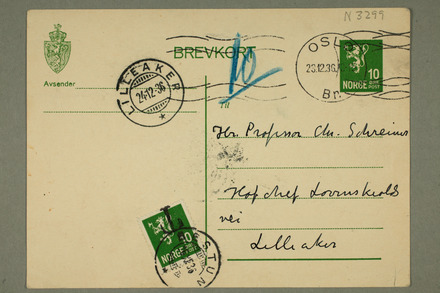 N 3299
BREVKORT
Avsender
LILLEAKER
24.12.36
10
OSL
23.12.36
Br.
10
NORGE
POST
Hr. Professor Chr. Schreiner
Hoffchef Løvenskiolds
vei
Lilleaker
T
10
NORGE
STUN